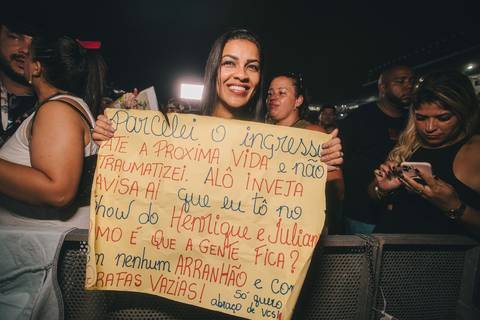 Parcelei o ingresso
ATÉ A PROXIMA VIDA e não
TRAUMATIZEI. ALÔ INVEJA
AVISA AÍ que eu tô no
show do Henrique e Julian
OMO É QUE A GENTE FICA?
m nenhum ARRANHÃO e com
RAFAS VAZIAS! Só quero
abraço de vcs!